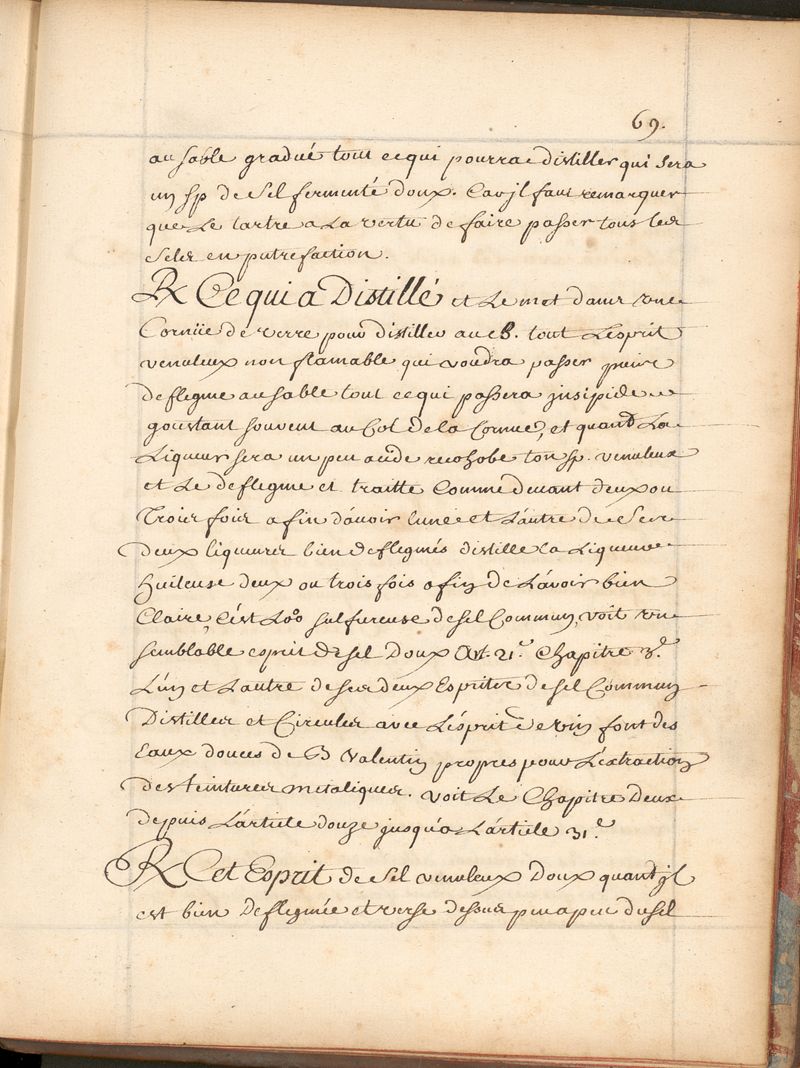 69.
au sable gradué tout ce qui pourra distiller qui sera
un sp de sel fermenté doux. Car jl faut remarquer
que Le tartre a La vertu de faire passer tous les
sels en putrefaction.
Ce qui a Distillé et Le met dans une
Cornüe de verre pour distiller au tout L'esprit
venuleux non flamable qui voudra passer puis
deflegme au sable tout ce qui passera jnsipide en
goustant souvent au Col de la Cornue, et quand La
Liqueur sera un peu acide recohobe ton sp. venuleux
et Le deflegme et traitte Comme devant deux ou
Trois fois afin d'avoir lune et L'autre de ses
deux liqueurs bien deflegmés distille la Liqueur
huileuse deux ou trois fois afin de L'avoir bien
Claire, c'est sulfureuse de sel Commun, voit un
semblable esprit de sel Doux Art. 21.e Chapitre 3.e
L'un et Lautre de ses deux Esprits de sel Commun
Distiller et Circuler avec L'esprit de vin font des
Eaux douces de B Valentin propres pour L'extraction
des teintures metaliques. voit Le Chapitre Deux
depuis L'article douze jusqu'a L'article 31.e
Cet Esprit de sel venuleux Doux quant jl
est bien Deflegmée et verse dessus peu a peu du sel